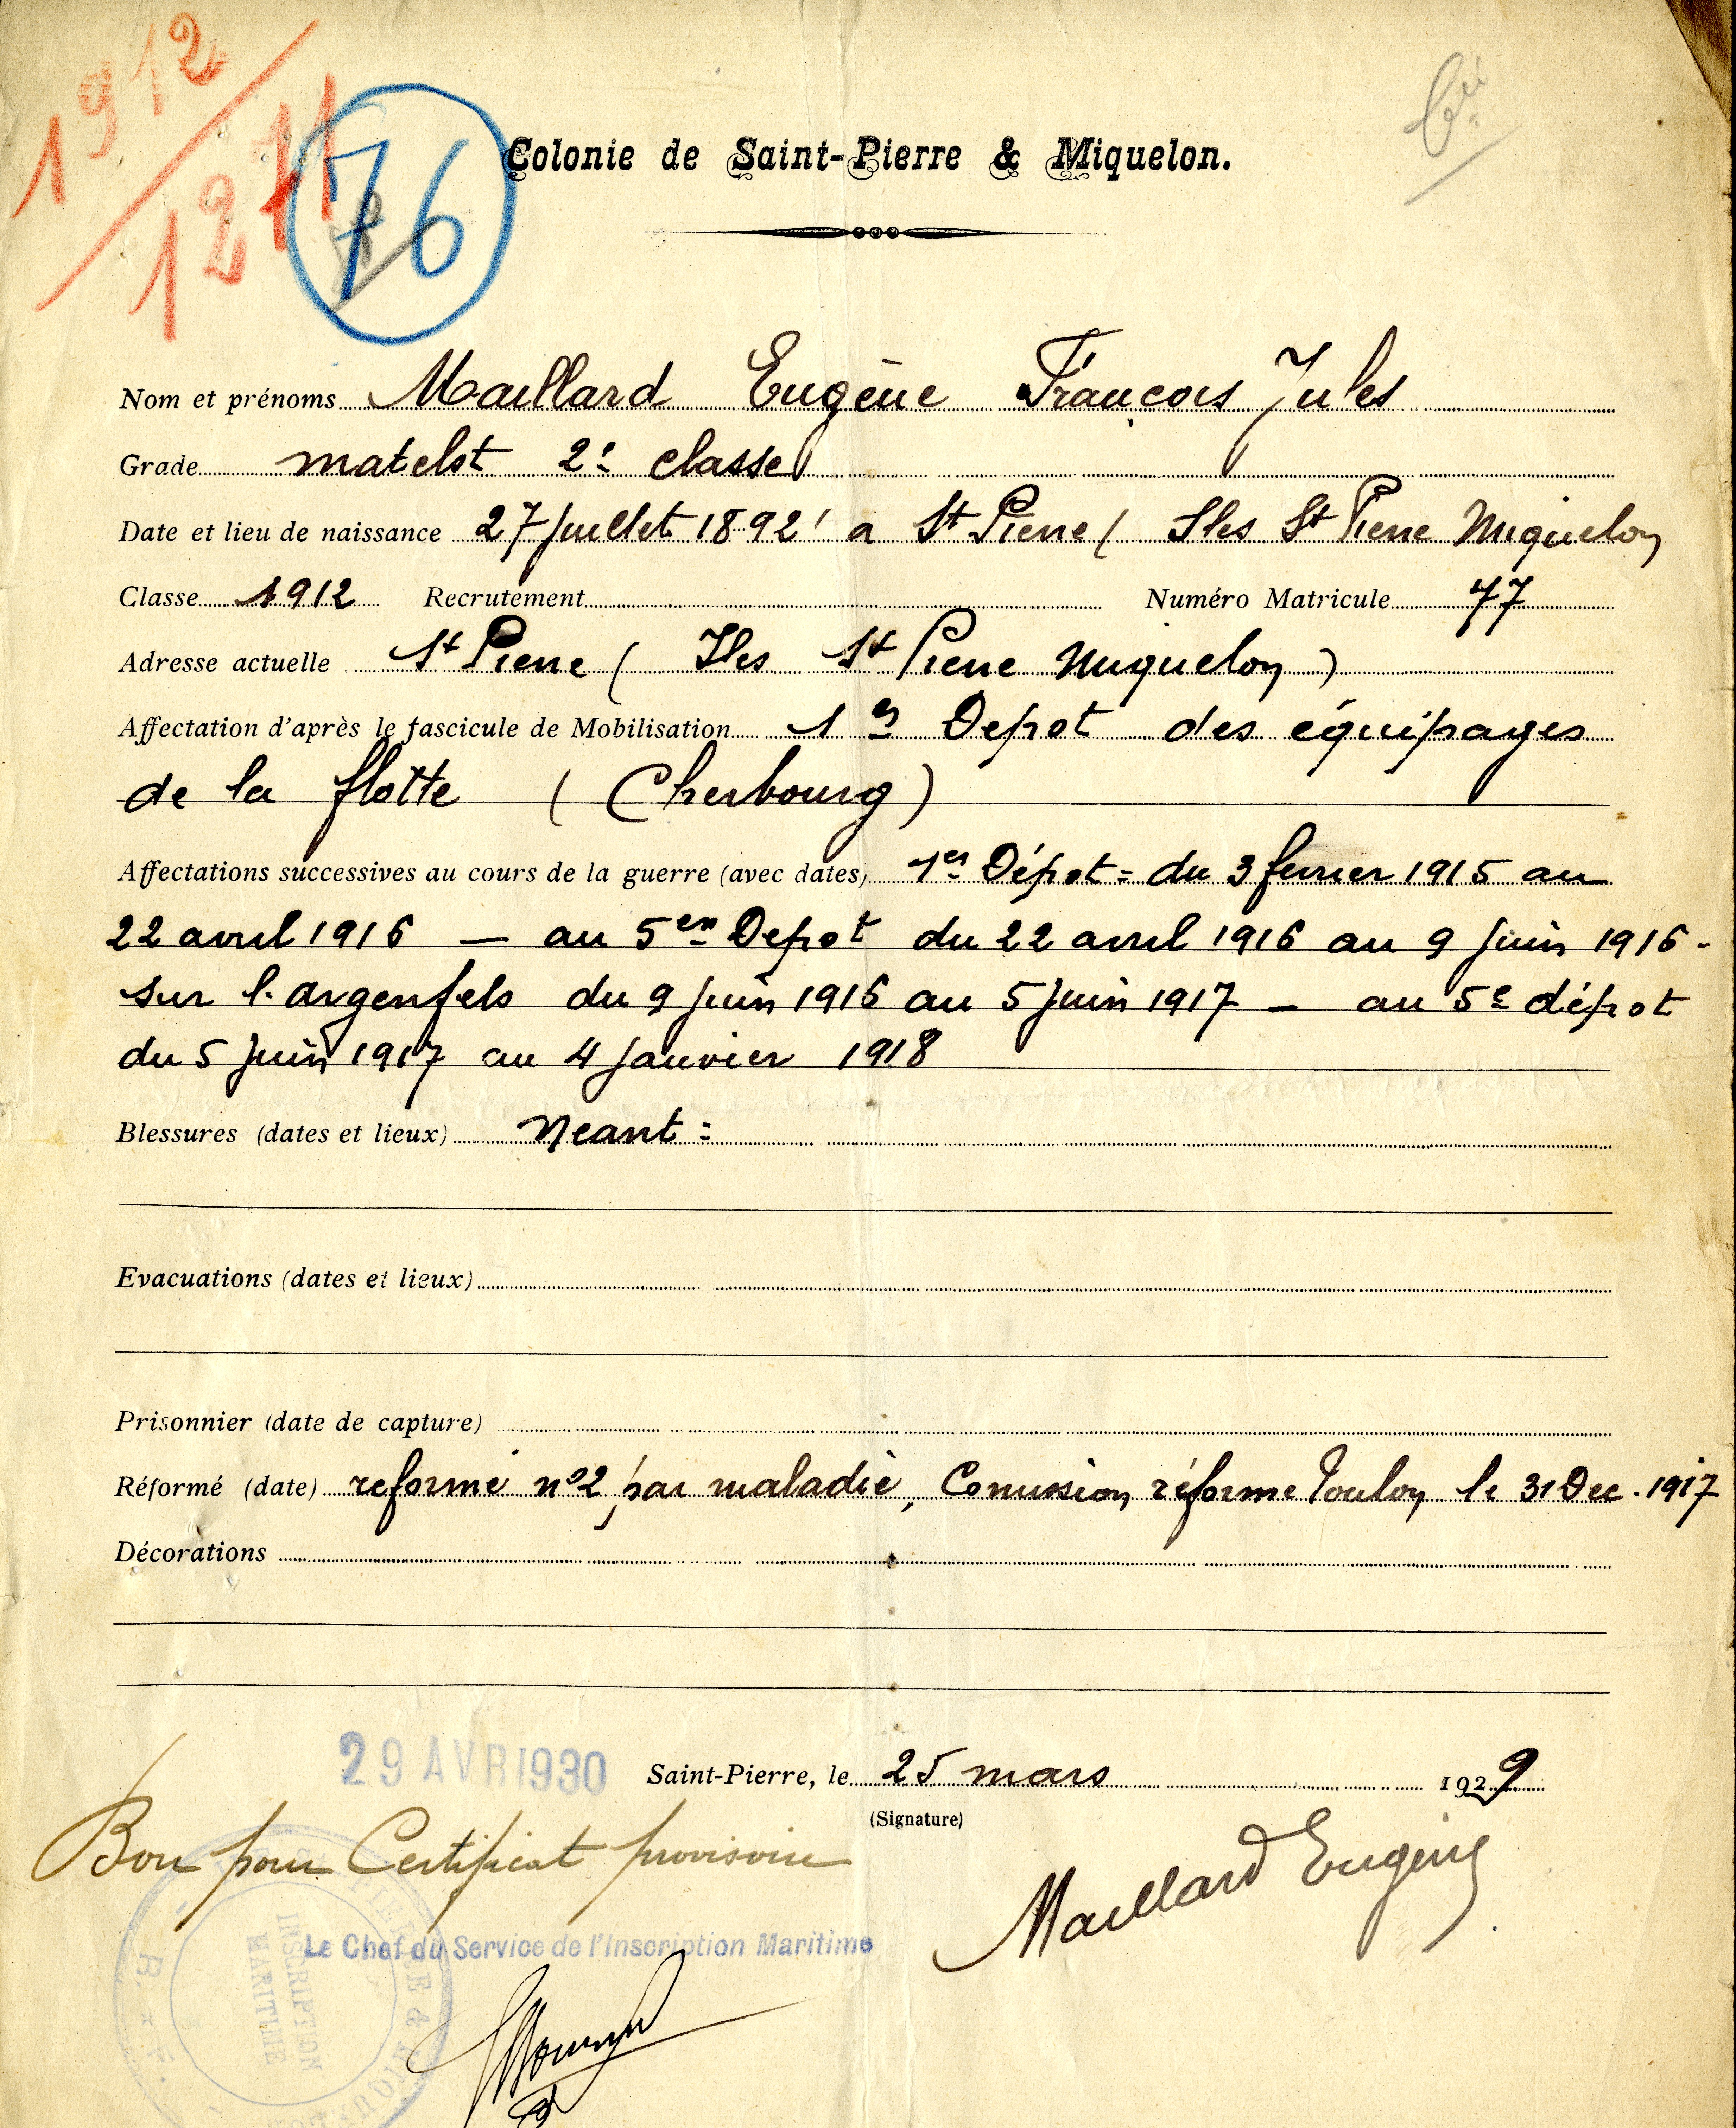 1912
1211
76
Colonie de Saint-Pierre & Miquelon.
Nom et prénoms Maillard Eugène François Jules
Grade matelot 2e classe
Date et lieu de naissance 27 Juillet 1892 a St Pierre ( Iles St Pierre Miquelon
Classe 1912 Recrutement Numéro Matricule 77
Adresse actuelle St Pierre ( Iles St Pierre Miquelon )
Affectation d'après le fascicule de Mobilisation 1er Depot des équipages
de la flotte ( Cherbourg )
Affectations successives au cours de la guerre (avec dates) 1er Dépot = du 3 fevrier 1915 au
22 avril 1916 — au 5em Depot du 22 avril 1916 au 9 Juin 1916 -
sur l'argenfels du 9 Juin 1916 au 5 Juin 1917 — au 5e dépot
du 5 Juin 1917 au 4 Janvier 1918
Blessures (dates et lieux) Neant =
Evacuations (dates et lieux)
Prisonnier (date de capture)
Réformé (date) reformé n°2 par maladie, Comission réforme Toulon le 31 Dec. 1917
Décorations
29 AVR 1930
Saint-Pierre, le 25 mars 1929
(Signature)
Bon pour Certificat provisoire
Maillard Eugène
Le Chef du Service de l'Inscription Maritime
INSCRIPTION
MARITIME